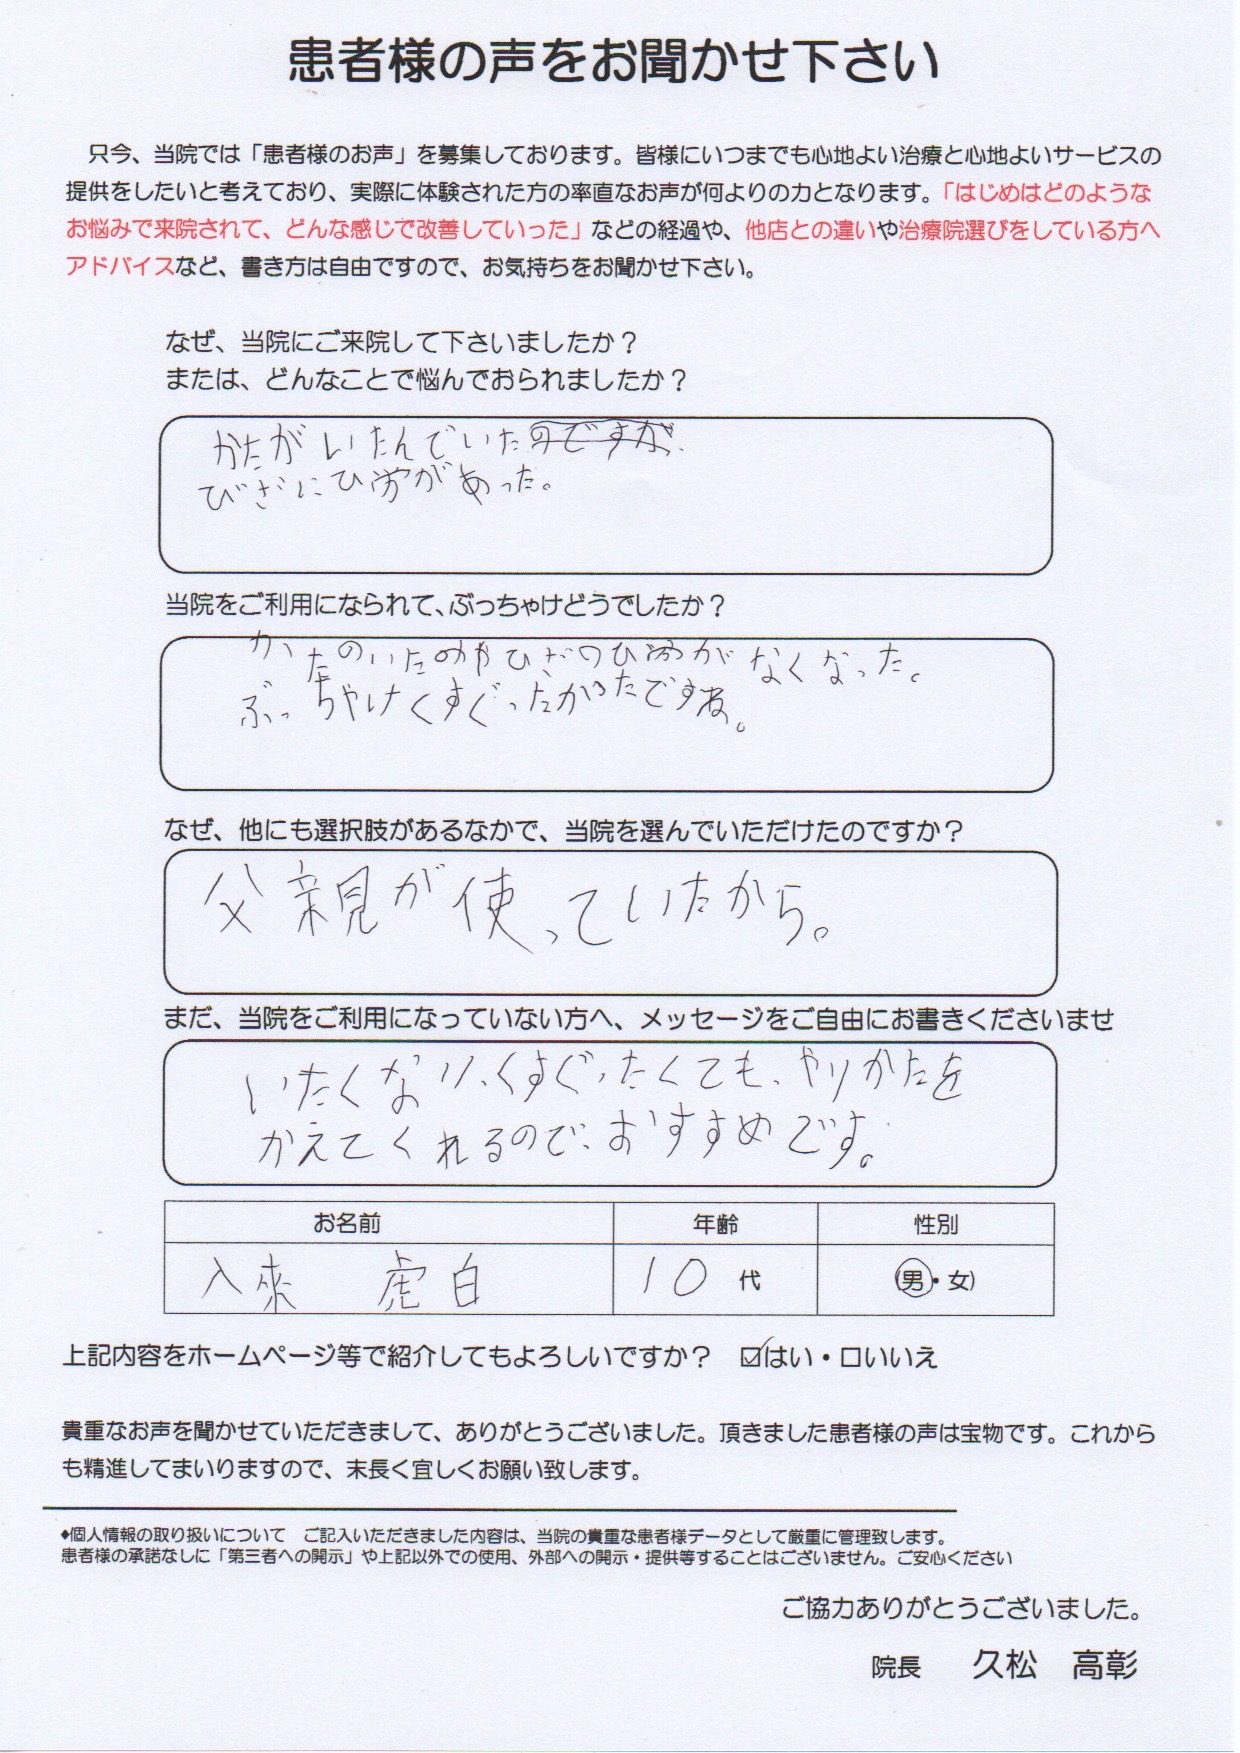 患者様の声をお聞かせ下さい
只今、当院では「患者様のお声」を募集しております。皆様にいつまでも心地よい治療と心地よいサービスの
提供をしたいと考えており、実際に体験された方の率直なお声が何よりの力となります。「はじめはどのような
お悩みで来院されて、どんな感じで改善していった」などの経過や、他店との違いや治療院選びをしている方へ
アドバイスなど、書き方は自由ですので、お気持ちをお聞かせ下さい。
なぜ、当院にご来院して下さいましたか？
または、どんなことで悩んでおられましたか？
かたがいたんでいたのですが.
びざにひ労があった。
当院をご利用になられて、ぶっちゃけどうでしたか？
かたのいたみやひざのひ労がなくなった。
ぶっちゃけくすぐったかったですね。
なぜ、他にも選択肢があるなかで、当院を選んでいただけたのですか？
父親が使っていたから。
まだ、当院をご利用になっていない方へ、メッセージをご自由にお書きくださいませ
いたくなり、くすぐったくても、やりかたを
かえてくれるので、おすすめです。
お名前 年齢 性別
入來 虎白 10 代 (男・女)
上記内容をホームページ等で紹介してもよろしいですか？ ☑はい・□いいえ
貴重なお声を聞かせていただきまして、ありがとうございました。頂きました患者様の声は宝物です。これから
も精進してまいりますので、末長く宜しくお願い致します。
◆個人情報の取り扱いについて ご記入いただきました内容は、当院の貴重な患者様データとして厳重に管理致します。
患者様の承諾なしに「第三者への開示」や上記以外での使用、外部への開示・提供等することはございません。ご安心ください
ご協力ありがとうございました。
院長 久松 高彰